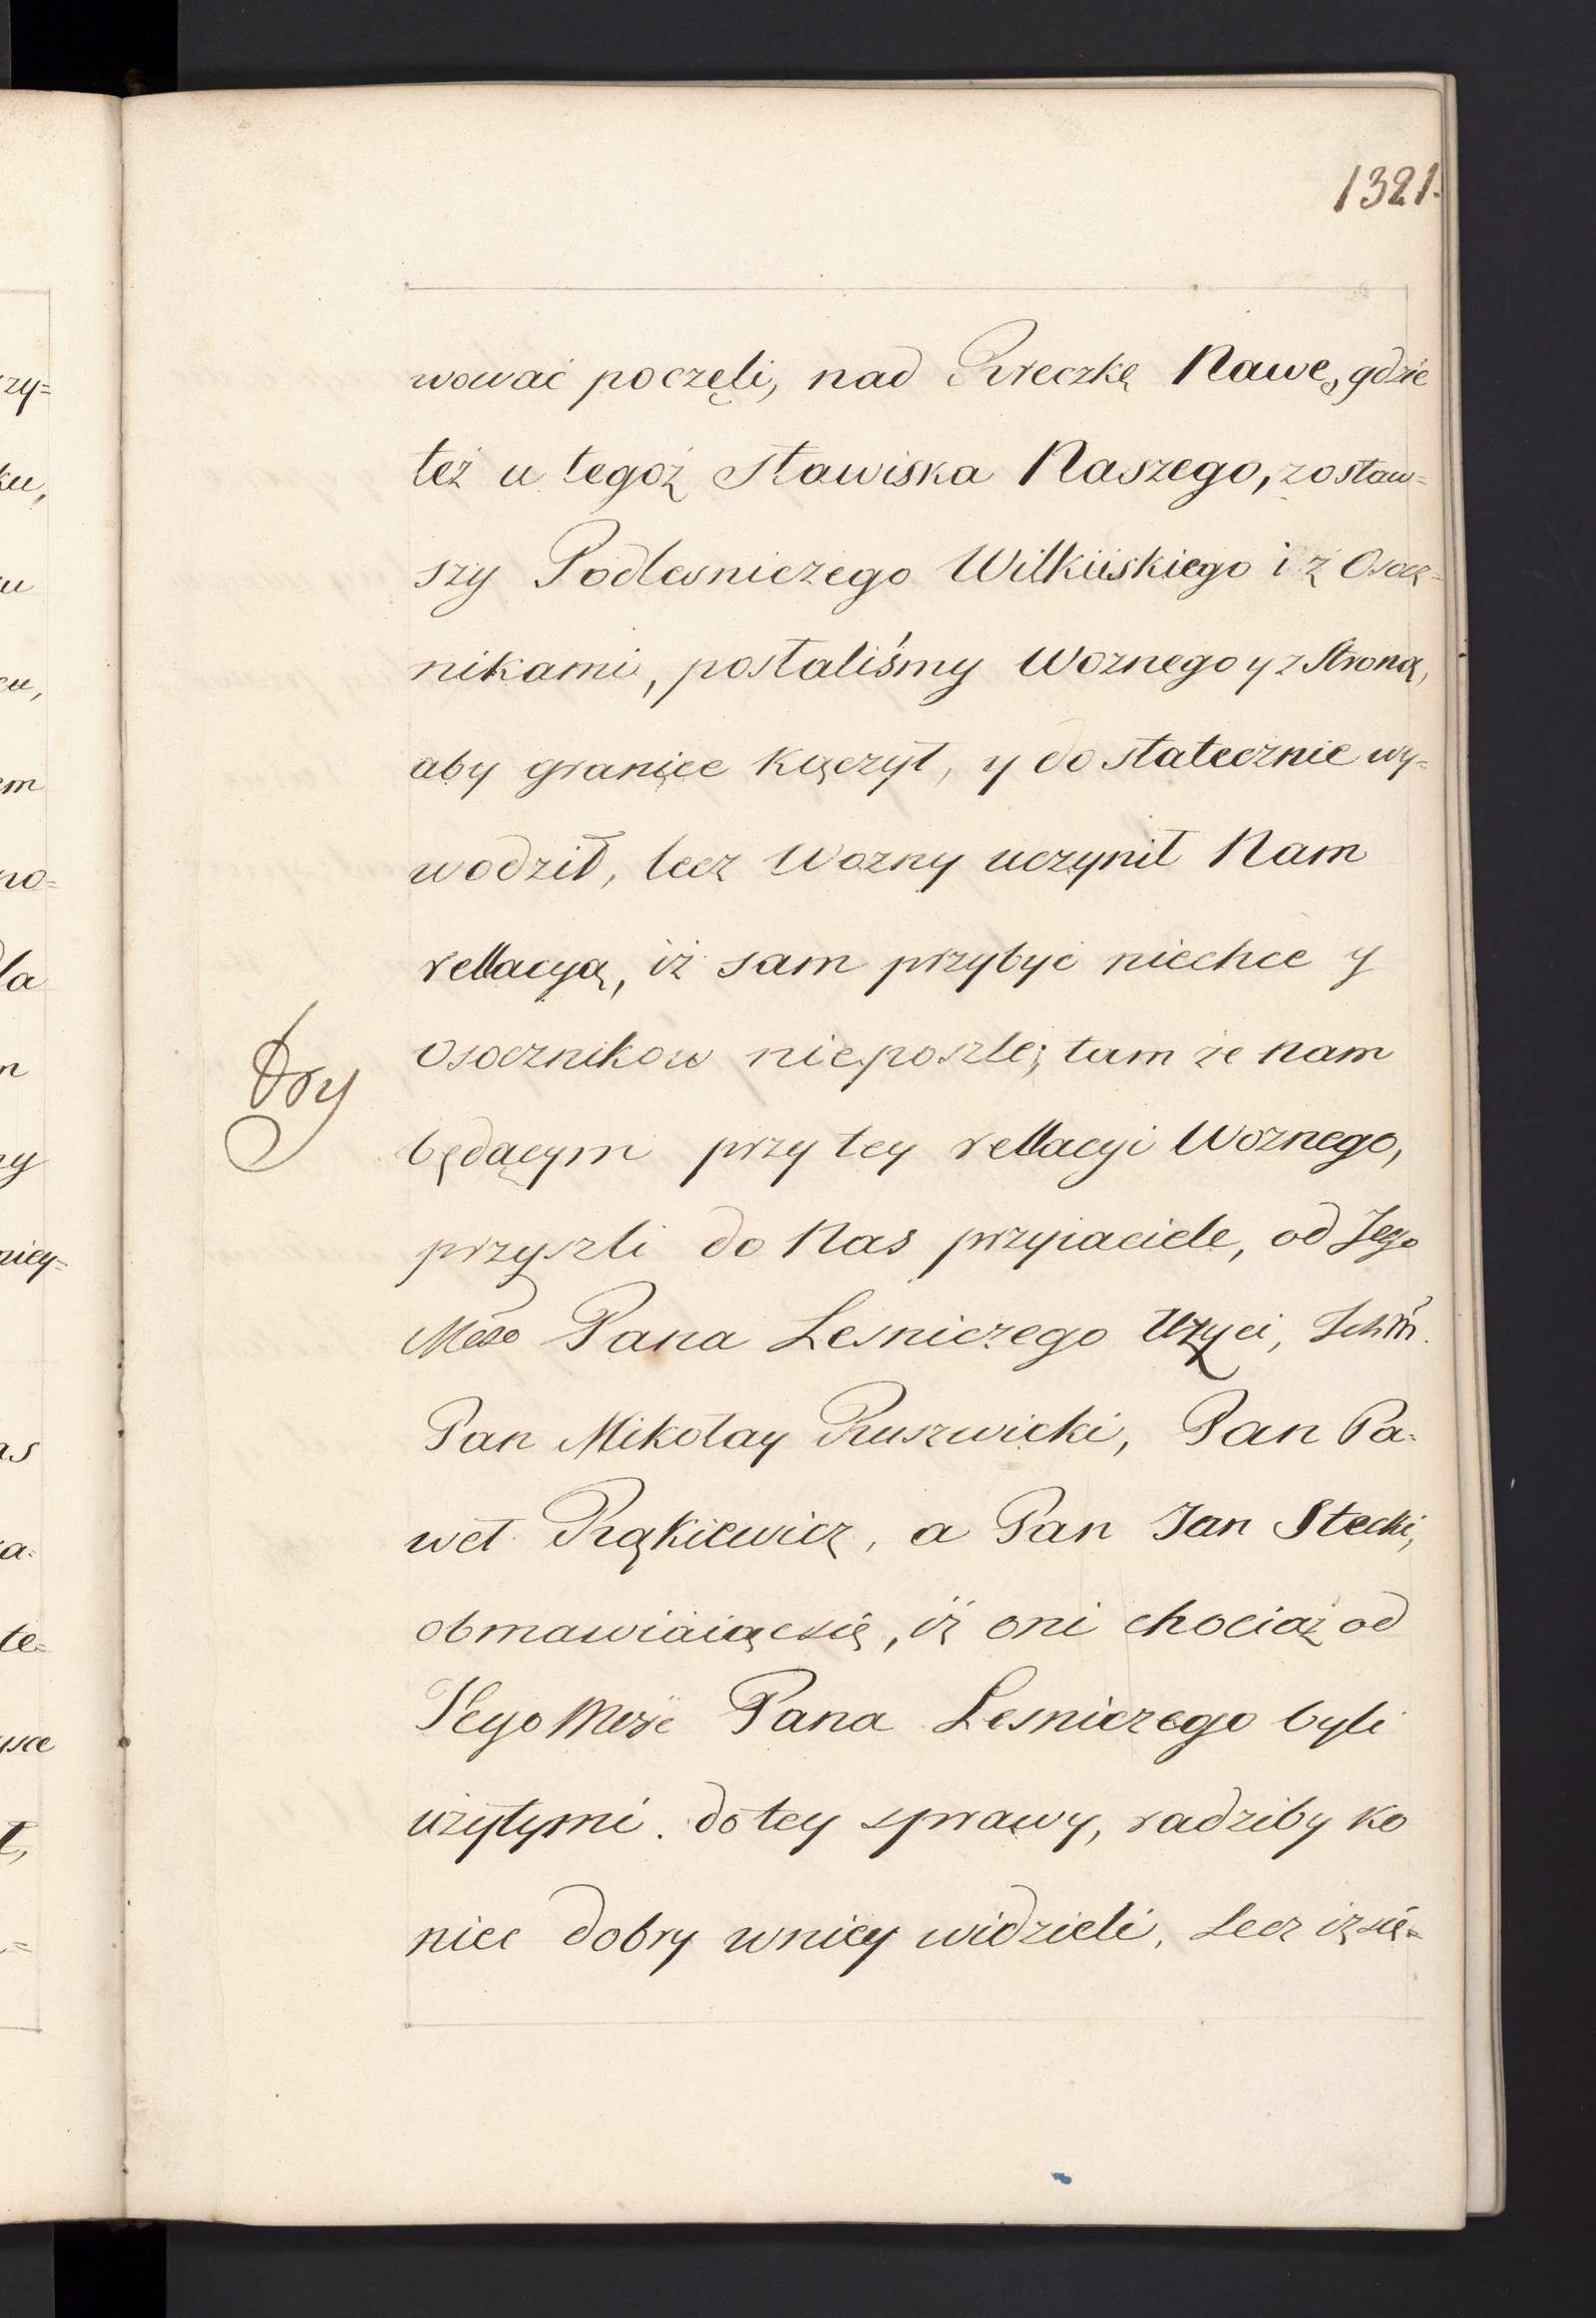 1321.
wować poczęli, nad Rzeczkę Nawe, gdzie
też u tegoż Stawiska Naszego, zostaw=
szy Podlesniczego Wilkiiskiego i z Osocz=
nikami, posłaliśmy Woznego y z Stroną,
aby granice kączył, y dostatecznie wy=
wodził, lecz Wozny uczynił Nam
rellacyą, iż sam przybyć niechce y
Osocznikow nieposzle; tam że nam
będącym przy tey rellacyi Woznego,
przyszli do Nas przyiaciele, od Jego
Pana Lesniczego Użyci,
Pan Mikołay Ruszwicki, Pan Pa=
weł Rąkiewicz, a Pan Jan Stecki,
obmawiaiącsię, iż oni chociaż od
Jego Pana Lesniczego byli
użytymi do tey sprawy, radziby ko
niec dobry wniey widzieli, Lecz iż się=